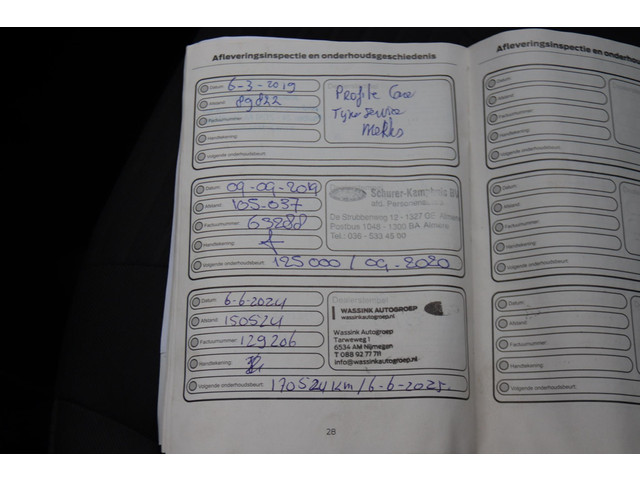 Afleveringsinspectie en onderhoudsgeschiedenis
Datum: 6-3-2019
Afstand: 89822
Factuurnummer:
Handtekening:
Volgende onderhoudsbeurt:
Profile Care
Tyre service
Datum: 09-09-2019
Afstand: 105.037
Factuurnummer: 63288
Handtekening:
Volgende onderhoudsbeurt: 125000 / 09-2020
De Strubbenweg 12 - 1327 GE Almere
Postbus 1048 - 1300 BA Almere
Tel.: 036 - 533 45 00
Datum: 6-6-2024
Afstand: 150524
Factuurnummer: 129206
Handtekening:
Volgende onderhoudsbeurt: 170524KM/6-6-2025.
Dealerstempel
WASSINK AUTOGROEP
wassinkautogroep.nl
Wassink Autogroep
Tarweweg 1
6534 AM Nijmegen
T 088 92 77 711
info@wassinkautogroep.nl
28
Afleveringsinspectie en onderh
Datum:
Afstand:
Factuurnummer:
Handtekening:
Volgende onderhoudsbeurt:
Datum:
Afstand:
Factuurnummer:
Handtekening:
Volgende onderhoudsbeurt:
Datum:
Afstand:
Factuurnummer:
Handtekening:
Volgende onderhoudsbeurt: